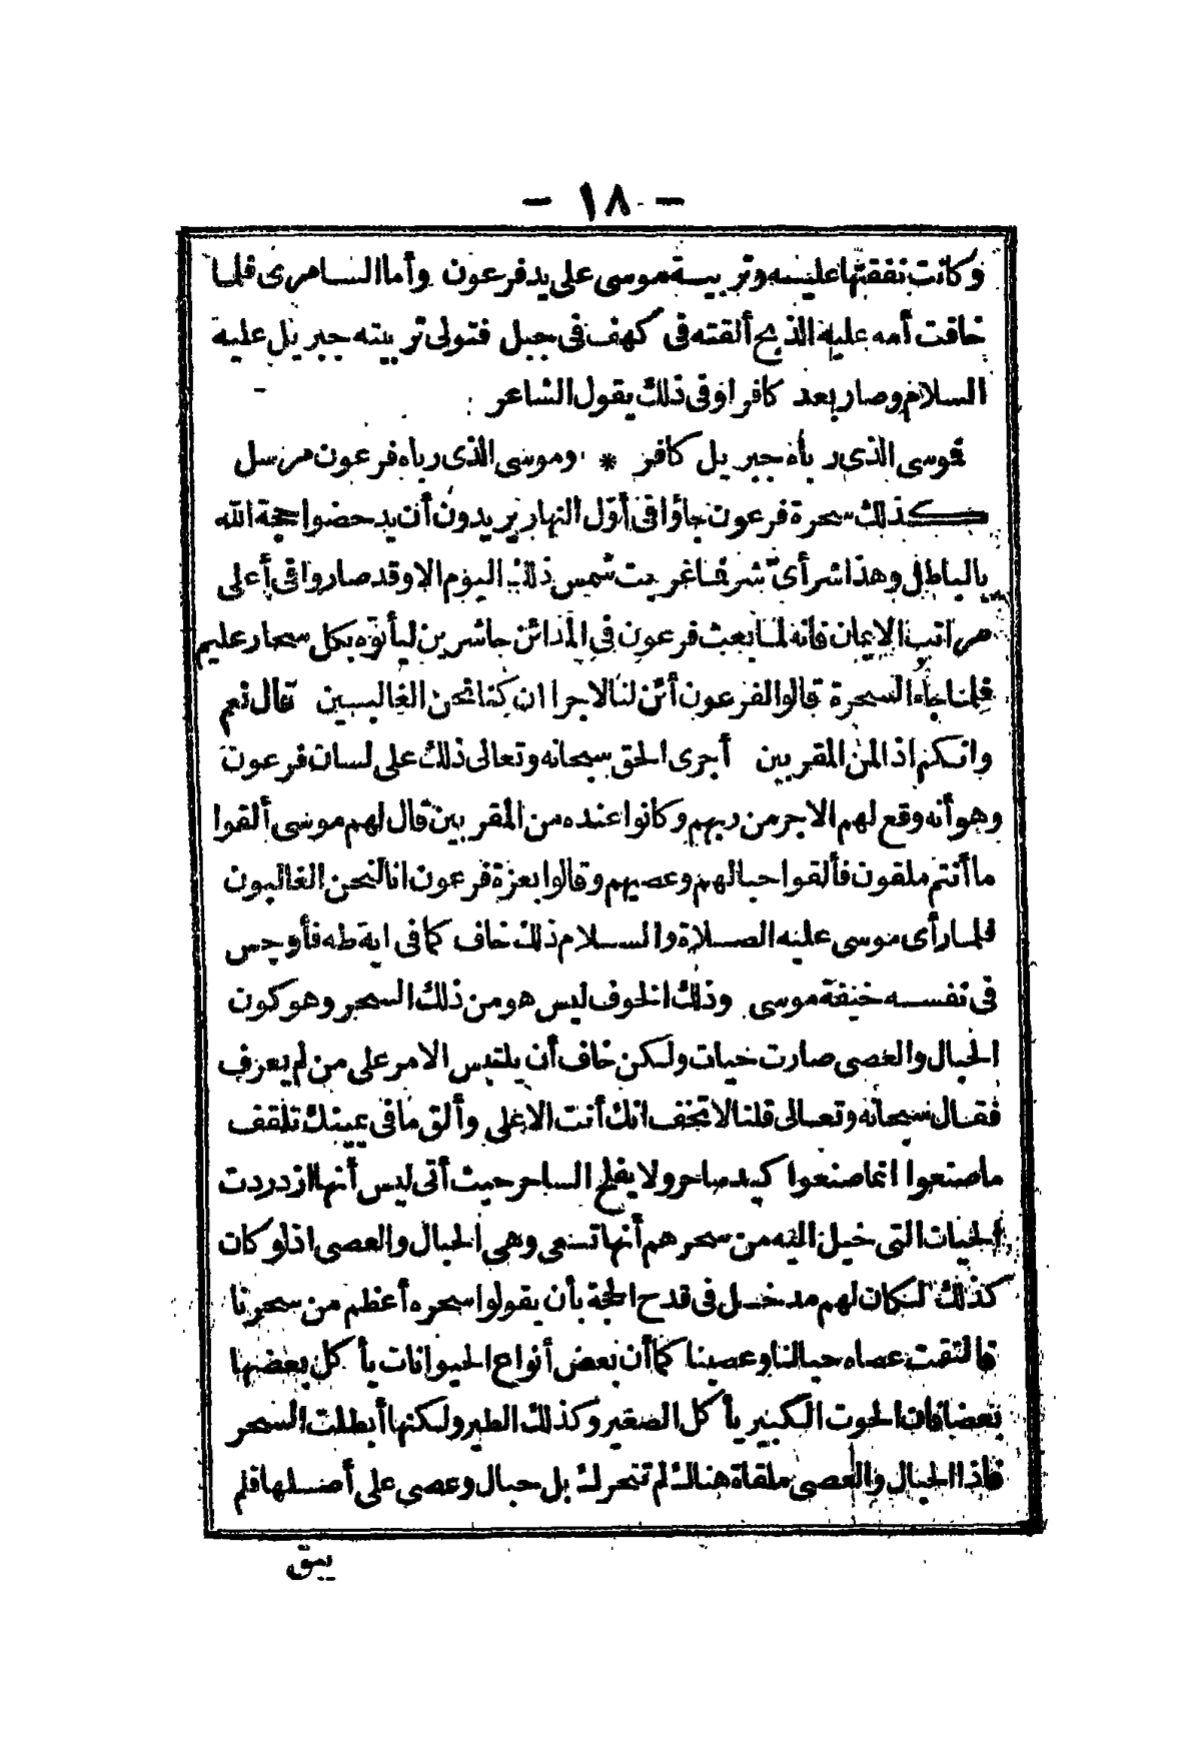 - ١٨ -
وكانت نفقتها عليه وتربية موسى على يد فرعون وأما السامرى فلما
خافت أمه عليه الذبح ألقته فى كهف فى جبل فتولى تربيته جبريل عليه
السلام وصار بعد كافرا وفى ذلك يقول الشاعر
فموسى الذى رباه جبريل كافر * وموسى الذى رباه فرعون مرسل
كذلك سحرة فرعون جاؤا فى أول النهار يريدون أن يدحضوا حجة الله
بالباطل وهذا شر أى شر فما غربت شمس ذلك اليوم الا وقد صاروا فى أعلى
مراتب الايمان فانه لما بعث فرعون فى المدائن حاشرين ليأتوه بكل سحار عليم
فلما جاء السحرة قالوا لفرعون أئن لنا لاجرا ان كنا نحن الغالبين قال نعم
وانكم اذا لمن المقربين أجرى الحق سبحانه وتعالى ذلك على لسان فرعون
وهو أنه وقع لهم الاجر من ربهم وكانوا عنده من المقربين قال لهم موسى ألقوا
ما أنتم ملقون فألقوا حبالهم وعصيهم وقالوا بعزة فرعون انا لنحن الغالبون
فلما رأى موسى عليه الصلاة والسلام ذلك خاف كما فى اية طه فأوجس
فى نفسه خيفة موسى وذلك الخوف ليس هو من ذلك السحر وهو كون
الحبال والعصى صارت حيات ولكن خاف أن يلتبس الامر على من لم يعرف
فقال سبحانه وتعالى قلنا لا تخف انك أنت الاعلى وألق ما فى يمينك تلقف
ما صنعوا انما صنعوا كيد ساحر ولا يفلح الساحر حيث أتى ليس أنها ازدردت
الحيات التى خيل اليه من سحرهم أنها تسعى وهى الحبال والعصى اذ لو كان
كذلك لكان لهم مدخل فى قدح الحجة بأن يقولوا سحره أعظم من سحرنا
فالتقمت عصاه حبالنا وعصينا كما أن بعض أنواع الحيوانات يأكل بعضها
بعضا فان الحوت الكبير يأكل الصغير وكذلك الطير ولكنها أبطلت السحر
فاذا الحبال والعصى ملقاة هناك لم تتحرك بل حبال وعصى على أصلها فلم
يبق